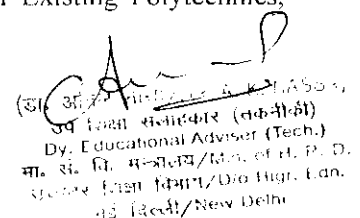 Existing Polytechnics,
(डा.
उप शिक्षा सलाहकार (तकनीकी)
Dy. Educational Adviser (Tech.)
मा. सं. वि. मन्त्रालय/Min. of H. R. D.
शिक्षा विभाग/D/o Higr. Edn.
नई दिल्ली/New Delhi